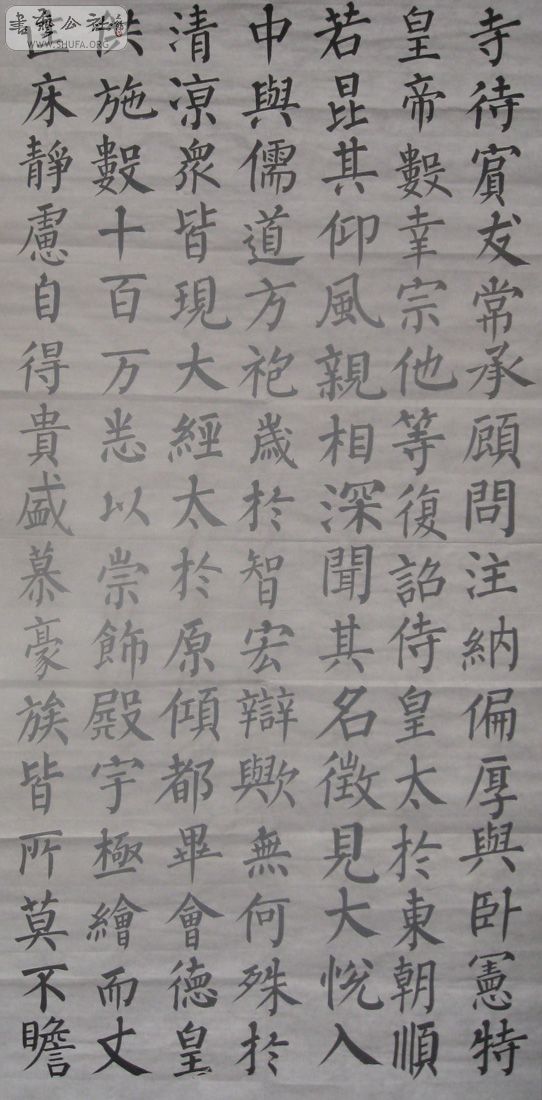 寺待賔友常承顧問注納偏厚與卧憲特
皇帝數幸宗他等復詔侍皇太於東朝順
若昆其仰風親相深聞其名徵見大悅入
中與儒道方袍歲於智宏辯歟無何殊於
清凉衆皆現大經太於原傾都畢會德皇
供施數十百万悉以崇飾殿宇極繪而丈
床靜慮自得貴盛慕豪族皆所莫不瞻
書藝公社
WWW.SHUFA.ORG